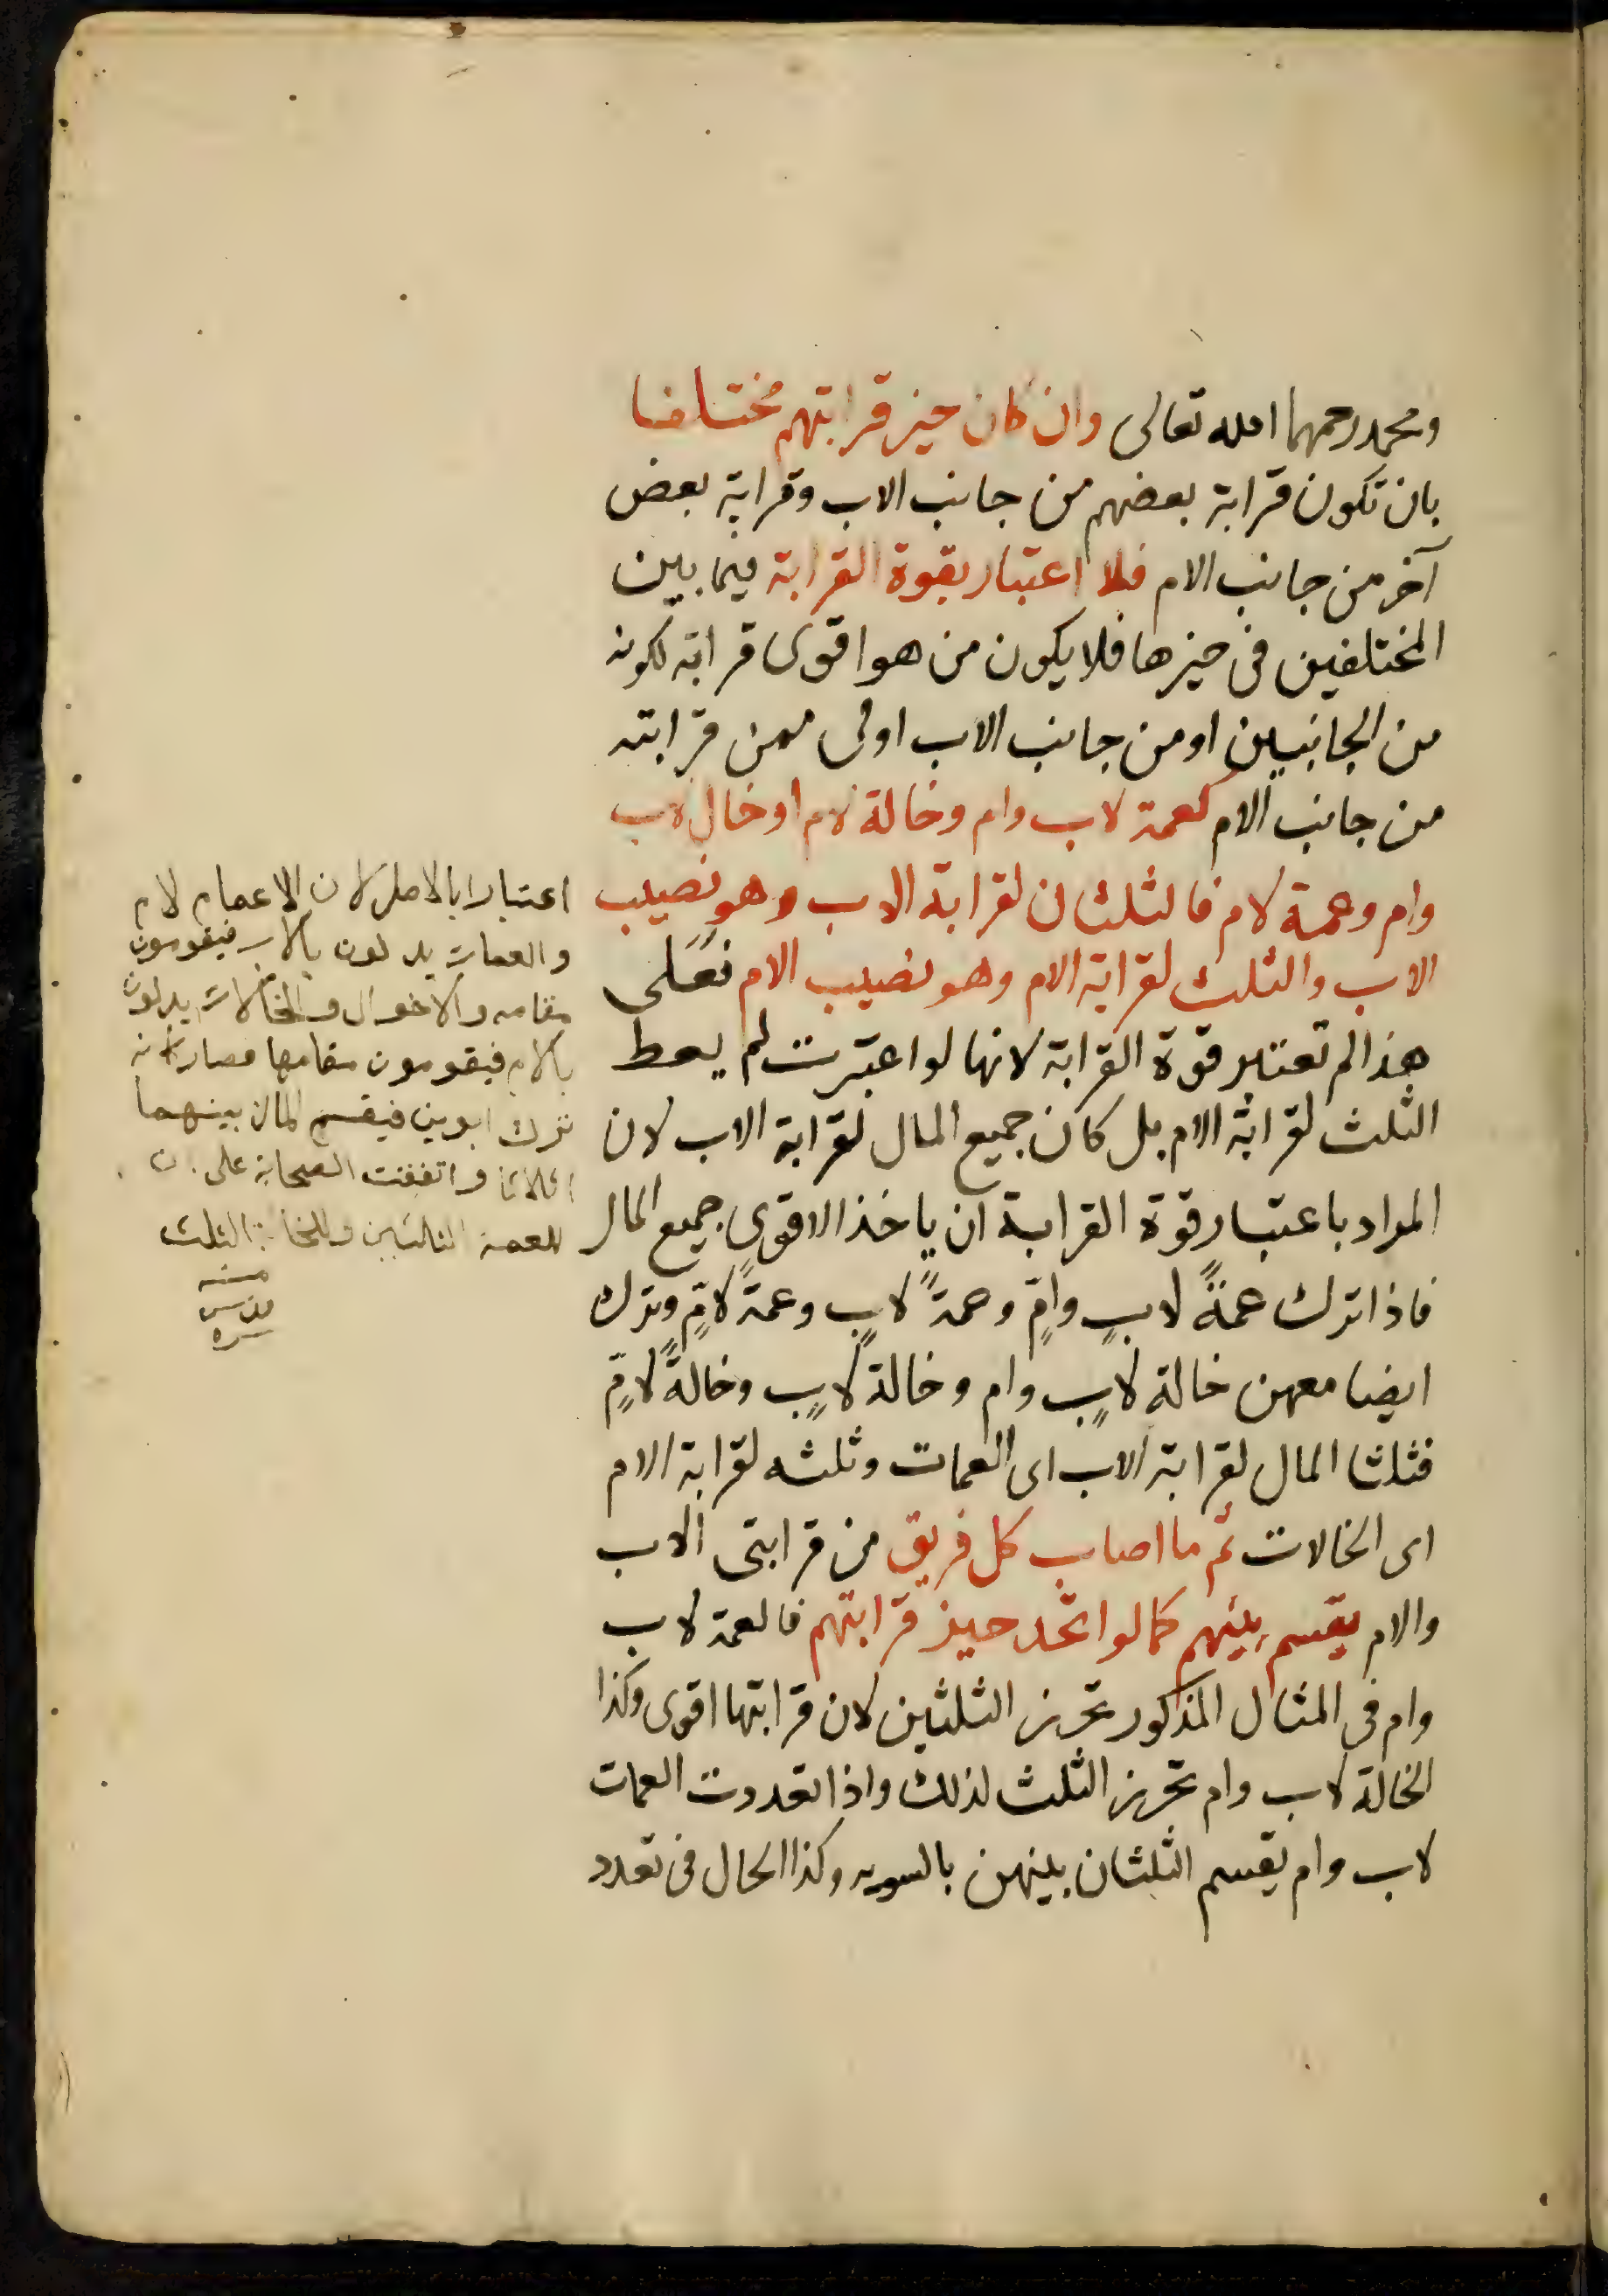 ومحمد رحمهما الله تعالى وان كان حيز قرابتهم مختلفا
بان تكون قرابة بعضهم من جانب الاب وقرابة بعض
آخر من جانب الام فلا اعتبار بقوة القرابة فيما بين
المختلفين فى حيزها فلا يكون من هو اقوى قرابة لكونه
من الجانبين او من جانب الاب اولى ممن قرابته
من جانب الام كعمة لاب وام وخالة لام او خال لاب
وام وعمة لام فالثلثان لقرابة الاب وهو نصيب
الاب والثلث لقرابة الام وهو نصيب الام فعلى
هذا لم تعتبر قوة القرابة لانها لو اعتبرت لم يعط
الثلث لقرابة الام بل كان جميع المال لقرابة الاب لان
المراد باعتبار قوة القرابة ان ياخذ الاقوى جميع المال
فاذا ترك عمةً لابٍ وامٍّ وعمةً لابٍ وعمةً لامٍّ وترك
ايضا معهن خالة لابٍ وام وخالة لابٍ وخالةً لامٍّ
فثلثا المال لقرابة الاب اى العمات وثلثه لقرابة الام
اى الخالات ثم ما اصاب كل فريق من قرابتى الاب
والام يقسم بينهم كما لو اتحد حيز قرابتهم فالعمة لاب
وام فى المثال المذكور تحرز الثلثين لان قرابتها اقوى وكذا
الخالة لاب وام تحرز الثلث لذلك واذا تعددت العمات
لاب وام يقسم الثلثان بينهن بالسويه وكذا الحال فى تعدد
اعتبارا بالاصل لان الاعمام لام
والعمات يدلون بالاب فيقومون
مقامه والاخوال والخالات يدلون
بالام فيقومون مقامها فصار كانه
ترك ابوين فيقسم المال بينهما
اثلاثا واتفقت الصحابة على ان
للعمة الثلثين وللخالة الثلث
منه
قدس
سره